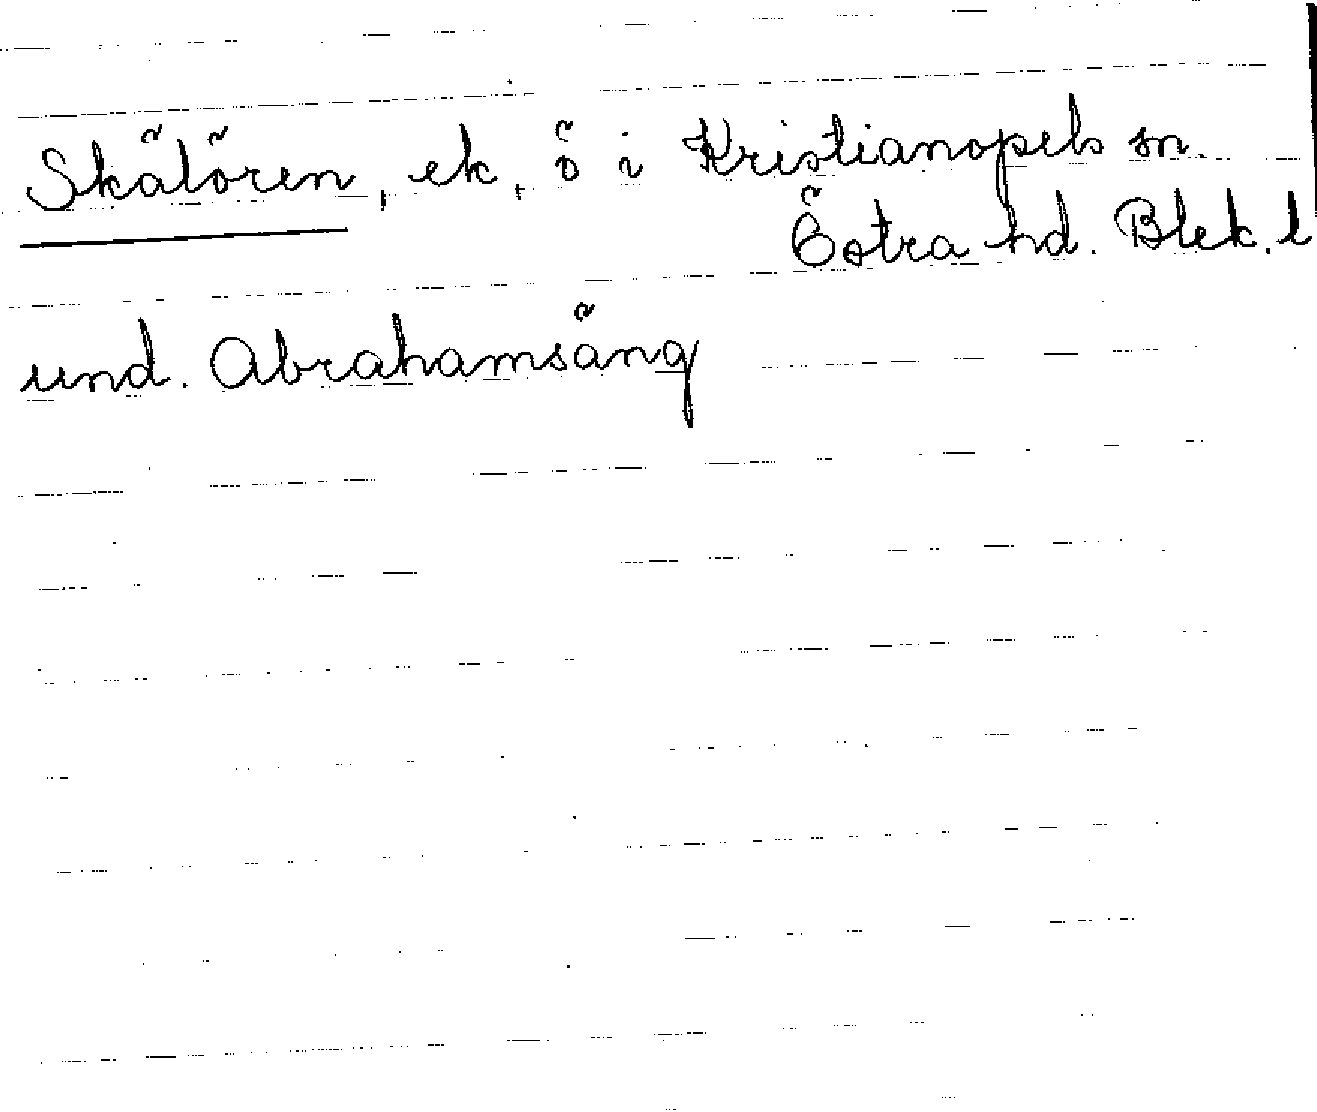 Skälören, ek, ö i Kristianopels sn.
Östra hd. Blek. l
und. Abrahamsäng